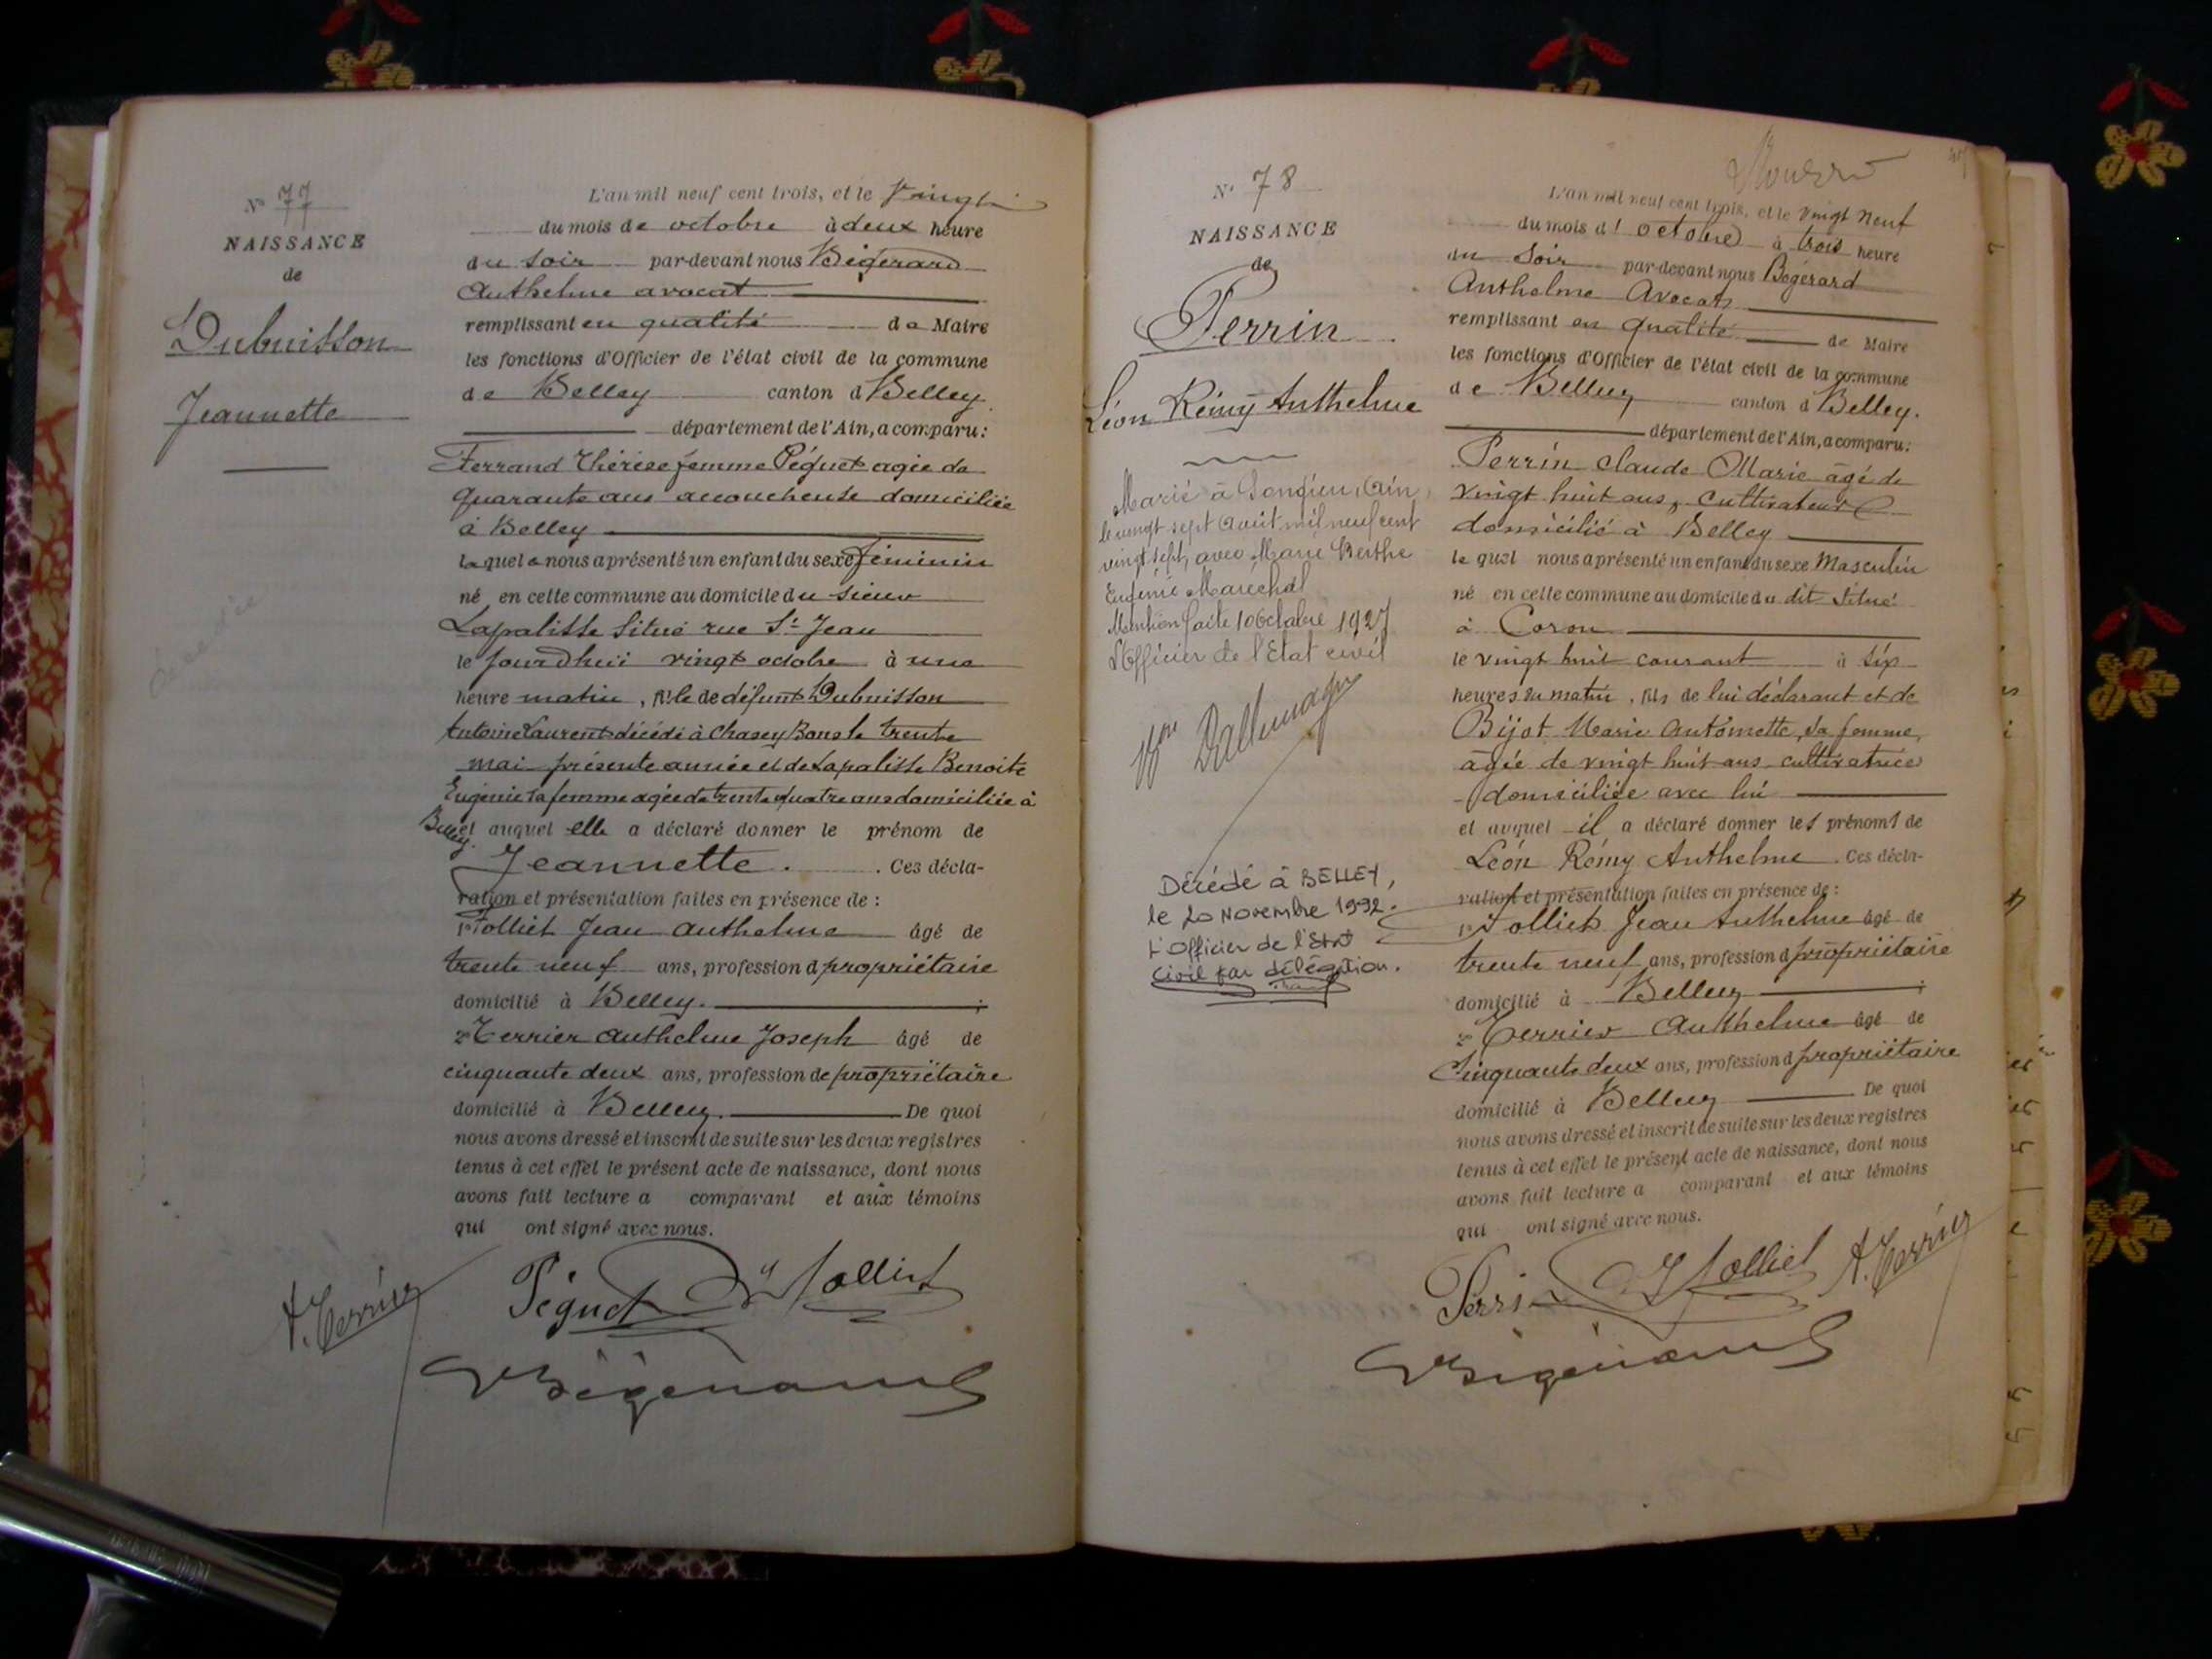 N° 77
NAISSANCE
de
Dubuisson
Jeannette
L'an mil neuf cent trois, et le vingt
du mois de octobre à deux heure
du soir par-devant nous Bégerard
Anthelme avocat
remplissant en qualité de Maire
les fonctions d'Officier de l'état civil de la commune
de Belley canton d Belley
département de l'Ain, a comparu:
Ferrand Thérèse femme Péguet agée de
quarante ans accoucheuse domiciliée
à Belley
laquelle nous a présenté un enfant du sexe féminin
né en cette commune au domicile du sieur
Lapalisse situé rue St Jean
le jourd'hui vingt octobre à une
heure matin, fille de défunt Dubuisson
Antoine Laurent décédé à Chazey Bons le trente
mai présente année et de Lapalisse Benoite
Eugénie sa femme agée de trente quatre ans domiciliée à
Belley. et auquel elle a déclaré donner le prénom de
Jeannette. Ces décla-
ration et présentation faites en présence de :
1° Folliet Jean Anthelme âgé de
trente neuf ans, profession d propriétaire
domicilié à Belley. ;
2° Terrier Anthelme Joseph âgé de
cinquante deux ans, profession de propriétaire
domicilié à Belley. De quoi
nous avons dressé et inscrit de suite sur les deux registres
tenus à cet effet le présent acte de naissance, dont nous
avons fait lecture a comparant et aux témoins
qui ont signé avec nous.
A. Terrier Péguet Folliet
Bégerard
N° 78
NAISSANCE
de
Perrin
Léon Rémy Anthelme
Marié à Songieu, Ain,
le vingt sept août mil neuf cent
vingt sept, avec Marie Berthe
Eugénie Maréchal
Mention faite 1 Octobre 1927
L'Officier de l'Etat civil
Décédé à BELLEY,
le 20 Novembre 1992.
L'Officier de l'Etat
Civil par délégation.
L'an mil neuf cent trois, et le vingt neuf
du mois d' octobre à trois heure
du soir par-devant nous Bégerard
Anthelme Avocat
remplissant en qualité de Maire
les fonctions d'Officier de l'état civil de la commune
de Belley canton d Belley.
département de l'Ain, a comparu:
Perrin Claude Marie âgé de
vingt huit ans, cultivateur
domicilié à Belley
lequel nous a présenté un enfant du sexe Masculin
né en cette commune au domicile du dit situé
à Coron
le vingt huit courant à six
heures du matin, fils de lui déclarant et de
Bijot Marie Antoinette, sa femme,
âgée de vingt huit ans cultivatrice
domiciliée avec lui
et auquel il a déclaré donner les prénoms de
Léon Rémy Anthelme. Ces décla-
ration et présentation faites en présence de :
1° Folliet Jean Anthelme âgé de
trente neuf ans, profession d propriétaire
domicilié à Belley ;
2° Terrier Anthelme âgé de
Cinquante deux ans, profession d propriétaire
domicilié à Belley De quoi
nous avons dressé et inscrit de suite sur les deux registres
tenus à cet effet le présent acte de naissance, dont nous
avons fait lecture a comparant et aux témoins
qui ont signé avec nous.
Perrin Folliet A. Terrier
Bégerard